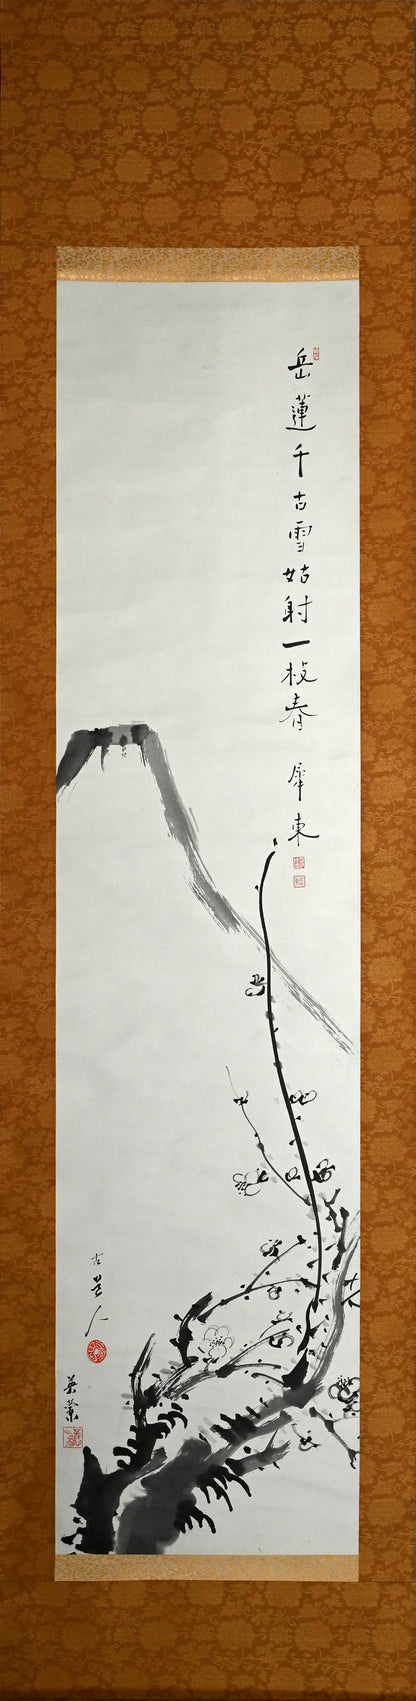 岳蓮千古雪姑射一枝春
犀東
古芒人
英業